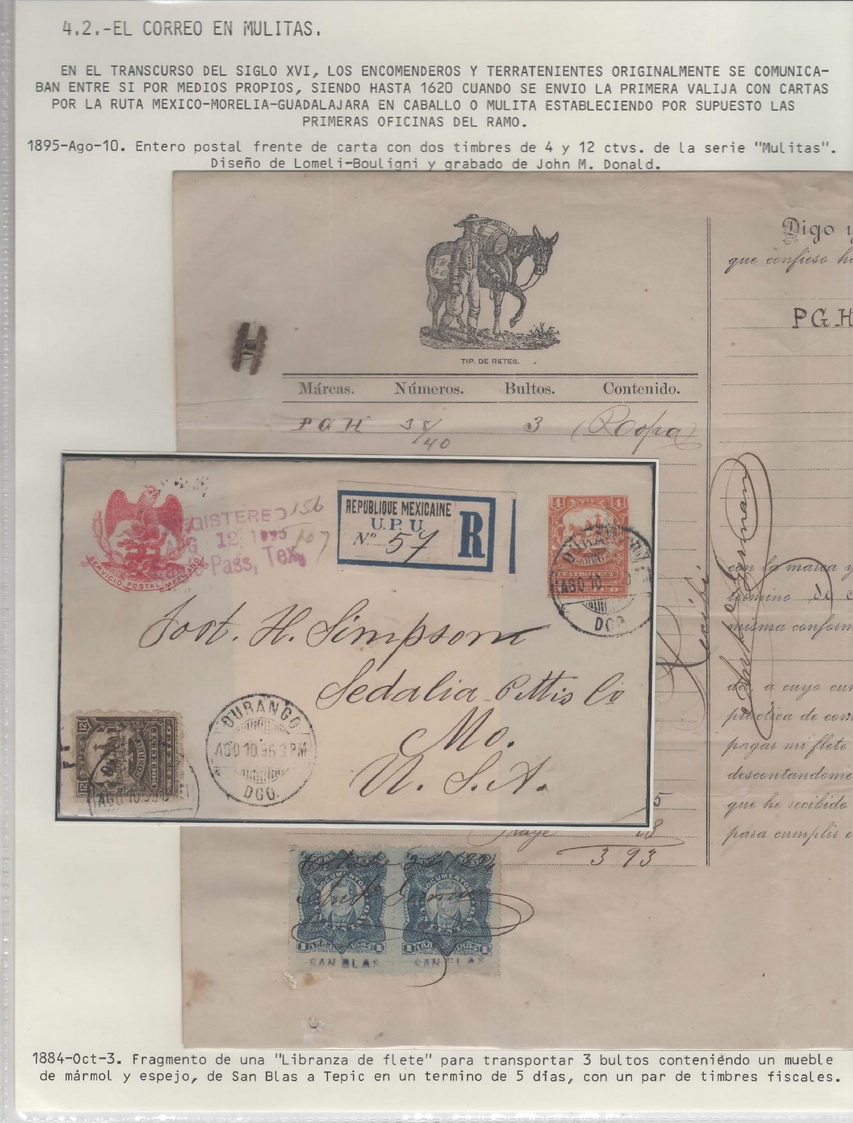 4.2.-EL CORREO EN MULITAS.
EN EL TRANSCURSO DEL SIGLO XVI, LOS ENCOMENDEROS Y TERRATENIENTES ORIGINALMENTE SE COMUNICA-
BAN ENTRE SI POR MEDIOS PROPIOS, SIENDO HASTA 1620 CUANDO SE ENVIO LA PRIMERA VALIJA CON CARTAS
POR LA RUTA MEXICO-MORELIA-GUADALAJARA EN CABALLO O MULITA ESTABLECIENDO POR SUPUESTO LAS
PRIMERAS OFICINAS DEL RAMO.
1895-Ago-10. Entero postal frente de carta con dos timbres de 4 y 12 ctvs. de la serie "Mulitas".
Diseño de Lomeli-Bouligni y grabado de John M. Donald.
TIP. DE RETES.
Márcas. Números. Bultos. Contenido.
PGH 38/40 3 (Ropa)
Digo y
que confieso h
PGH
con la marca y
termino de c
misma conform
da, a cuyo cum
práctica de corr
pagar mi flete
descontandome
que he recibido
para cumplir e
Recibí
SERVICIO POSTAL MEXICANO
REGISTERED
12 1895
Pass, Tex.
156
107
REPUBLIQUE MEXICAINE
U.P.U
Nº 57
R
4 4
DURANGO
AGO 10
DGO.
Jost. H. Simpson
Sedalia Pettis Co
Mo.
U. S. A.
12 12
DURANGO
AGO 10.95 3 PM
DGO.
AGO 10.95
5
18
3 93
DOCUMENTOS DOCUMENTOS
SAN BLAS SAN BLAS
1884-Oct-3. Fragmento de una "Libranza de flete" para transportar 3 bultos conteniéndo un mueble
de mármol y espejo, de San Blas a Tepic en un termino de 5 días, con un par de timbres fiscales.